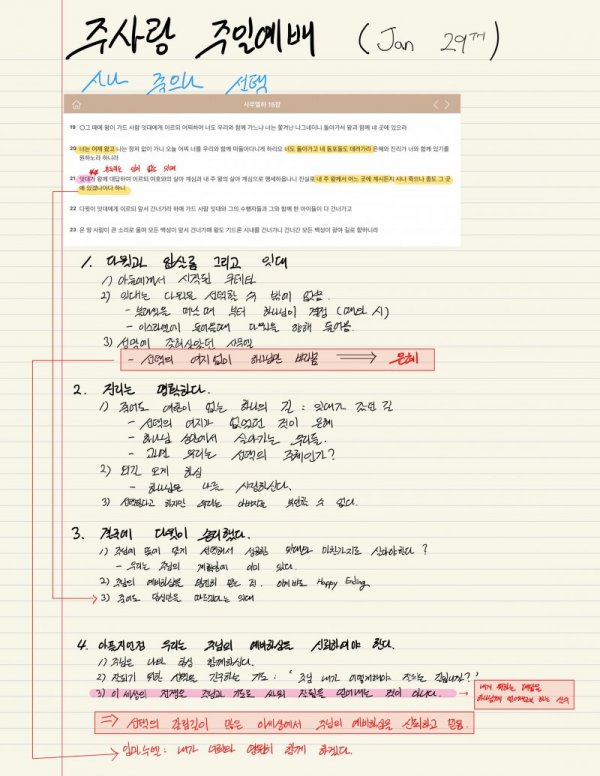 주사랑 주일예배 (Jan 29TH)
사나 죽으나 선택
사무엘하 15장
19 ○그 때에 왕이 가드 사람 잇대에게 이르되 어찌하여 너도 우리와 함께 가느냐 너는 쫓겨난 나그네이니 돌아가서 왕과 함께 네 곳에 있으라
20 너는 어제 왔고 나는 정처 없이 가니 오늘 어찌 너를 우리와 함께 떠돌아다니게 하리요 너도 돌아가고 네 동포들도 데려가라 은혜와 진리가 너와 함께 있기를
원하노라 하니라
없는 잇대
21 잇대가 왕께 대답하여 이르되 여호와의 살아 계심과 내 주 왕의 살아 계심으로 맹세하옵나니 진실로 내 주 왕께서 어느 곳에 계시든지 사나 죽으나 종도 그 곳
에 있겠나이다 하니
22 다윗이 잇대에게 이르되 앞서 건너가라 하매 가드 사람 잇대와 그의 수행자들과 그와 함께 한 아이들이 다 건너가고
23 온 땅 사람이 큰 소리로 울며 모든 백성이 앞서 건너가매 왕도 기드론 시내를 건너가니 건너간 모든 백성이 광야 길로 향하니라
1. 다윗과 압살롬 그리고 잇대
1) 아들에게서 시작된 쿠데타
2) 잇대는 다윗을 선택할 수 밖에 없음.
- 떠날 때 부터 하나님이 결정 (떠난 시)
- 이스라엘에 들어올때 다윗을 향해 들어옴.
3) 선택에 사울
- 선택의 여지없이 하나님만 바라봄 ⟹ 은혜
2. 진리는 명확하다.
1) 죽어도 여한이 없는 하나의 길 : 잇대가 조던 길
- 선택의 여지가 없었던 것이 은혜
- 하나님 살아가는 우리들.
- 그러면 우리는 선택의 주체인가?
2) 외길 오게 하심
- 하나님은 나를 사랑하신다.
3) 선택한다고 하지만 우리는 아버지를 선택할 수 없다.
3. 결국에 다윗이 승리했다.
1) 주님께 맡겨 선택해서 성공한 잇대와 마찬가지로 살아야한다?
- 우리는 주님의 계획하에 이미 있다.
2) 주님의 예비하심을 온전히 믿는 것. 이게바로 Happy Ending
3) 죽어도 당신만을 따르겠다는 잇대
4. 아프지만 우리는 주님의 예비하심을 신뢰하여야 한다.
1) 주님은 나와 항상 함께하신다.
2) 살피기 위한 선택을 간구하는 기도 : "주님 내가 어떻게해야 살피는 길입니까?"
3) 이 세상의 전쟁은 주님과 기도로 싸워 승리를 얻어내는 것이 아니다.
내가 원하는 대답을
하나님께 얻어내려고 하는 실수
⟹ 선택의 갈림길이 많은 이세상에서 주님의 예비하심을 신뢰하고 믿음.
임마누엘 : 내가 너희와 영원히 함께 하겠다.